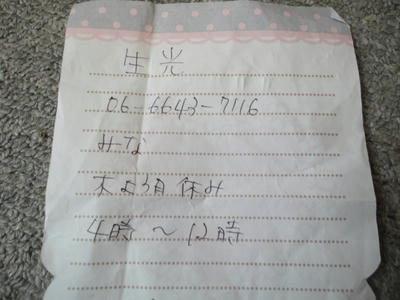 生光
06-6643-7116
みな
木よう日休み
4時〜12時